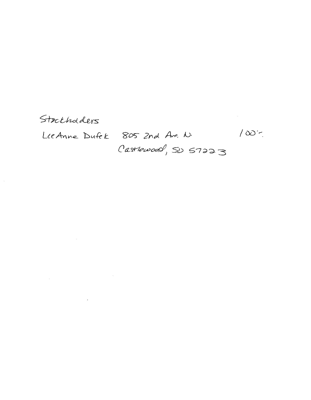 Stockholders
LeeAnne Dufek 805 2nd Ave N 100%
Castlewood, SD 57223